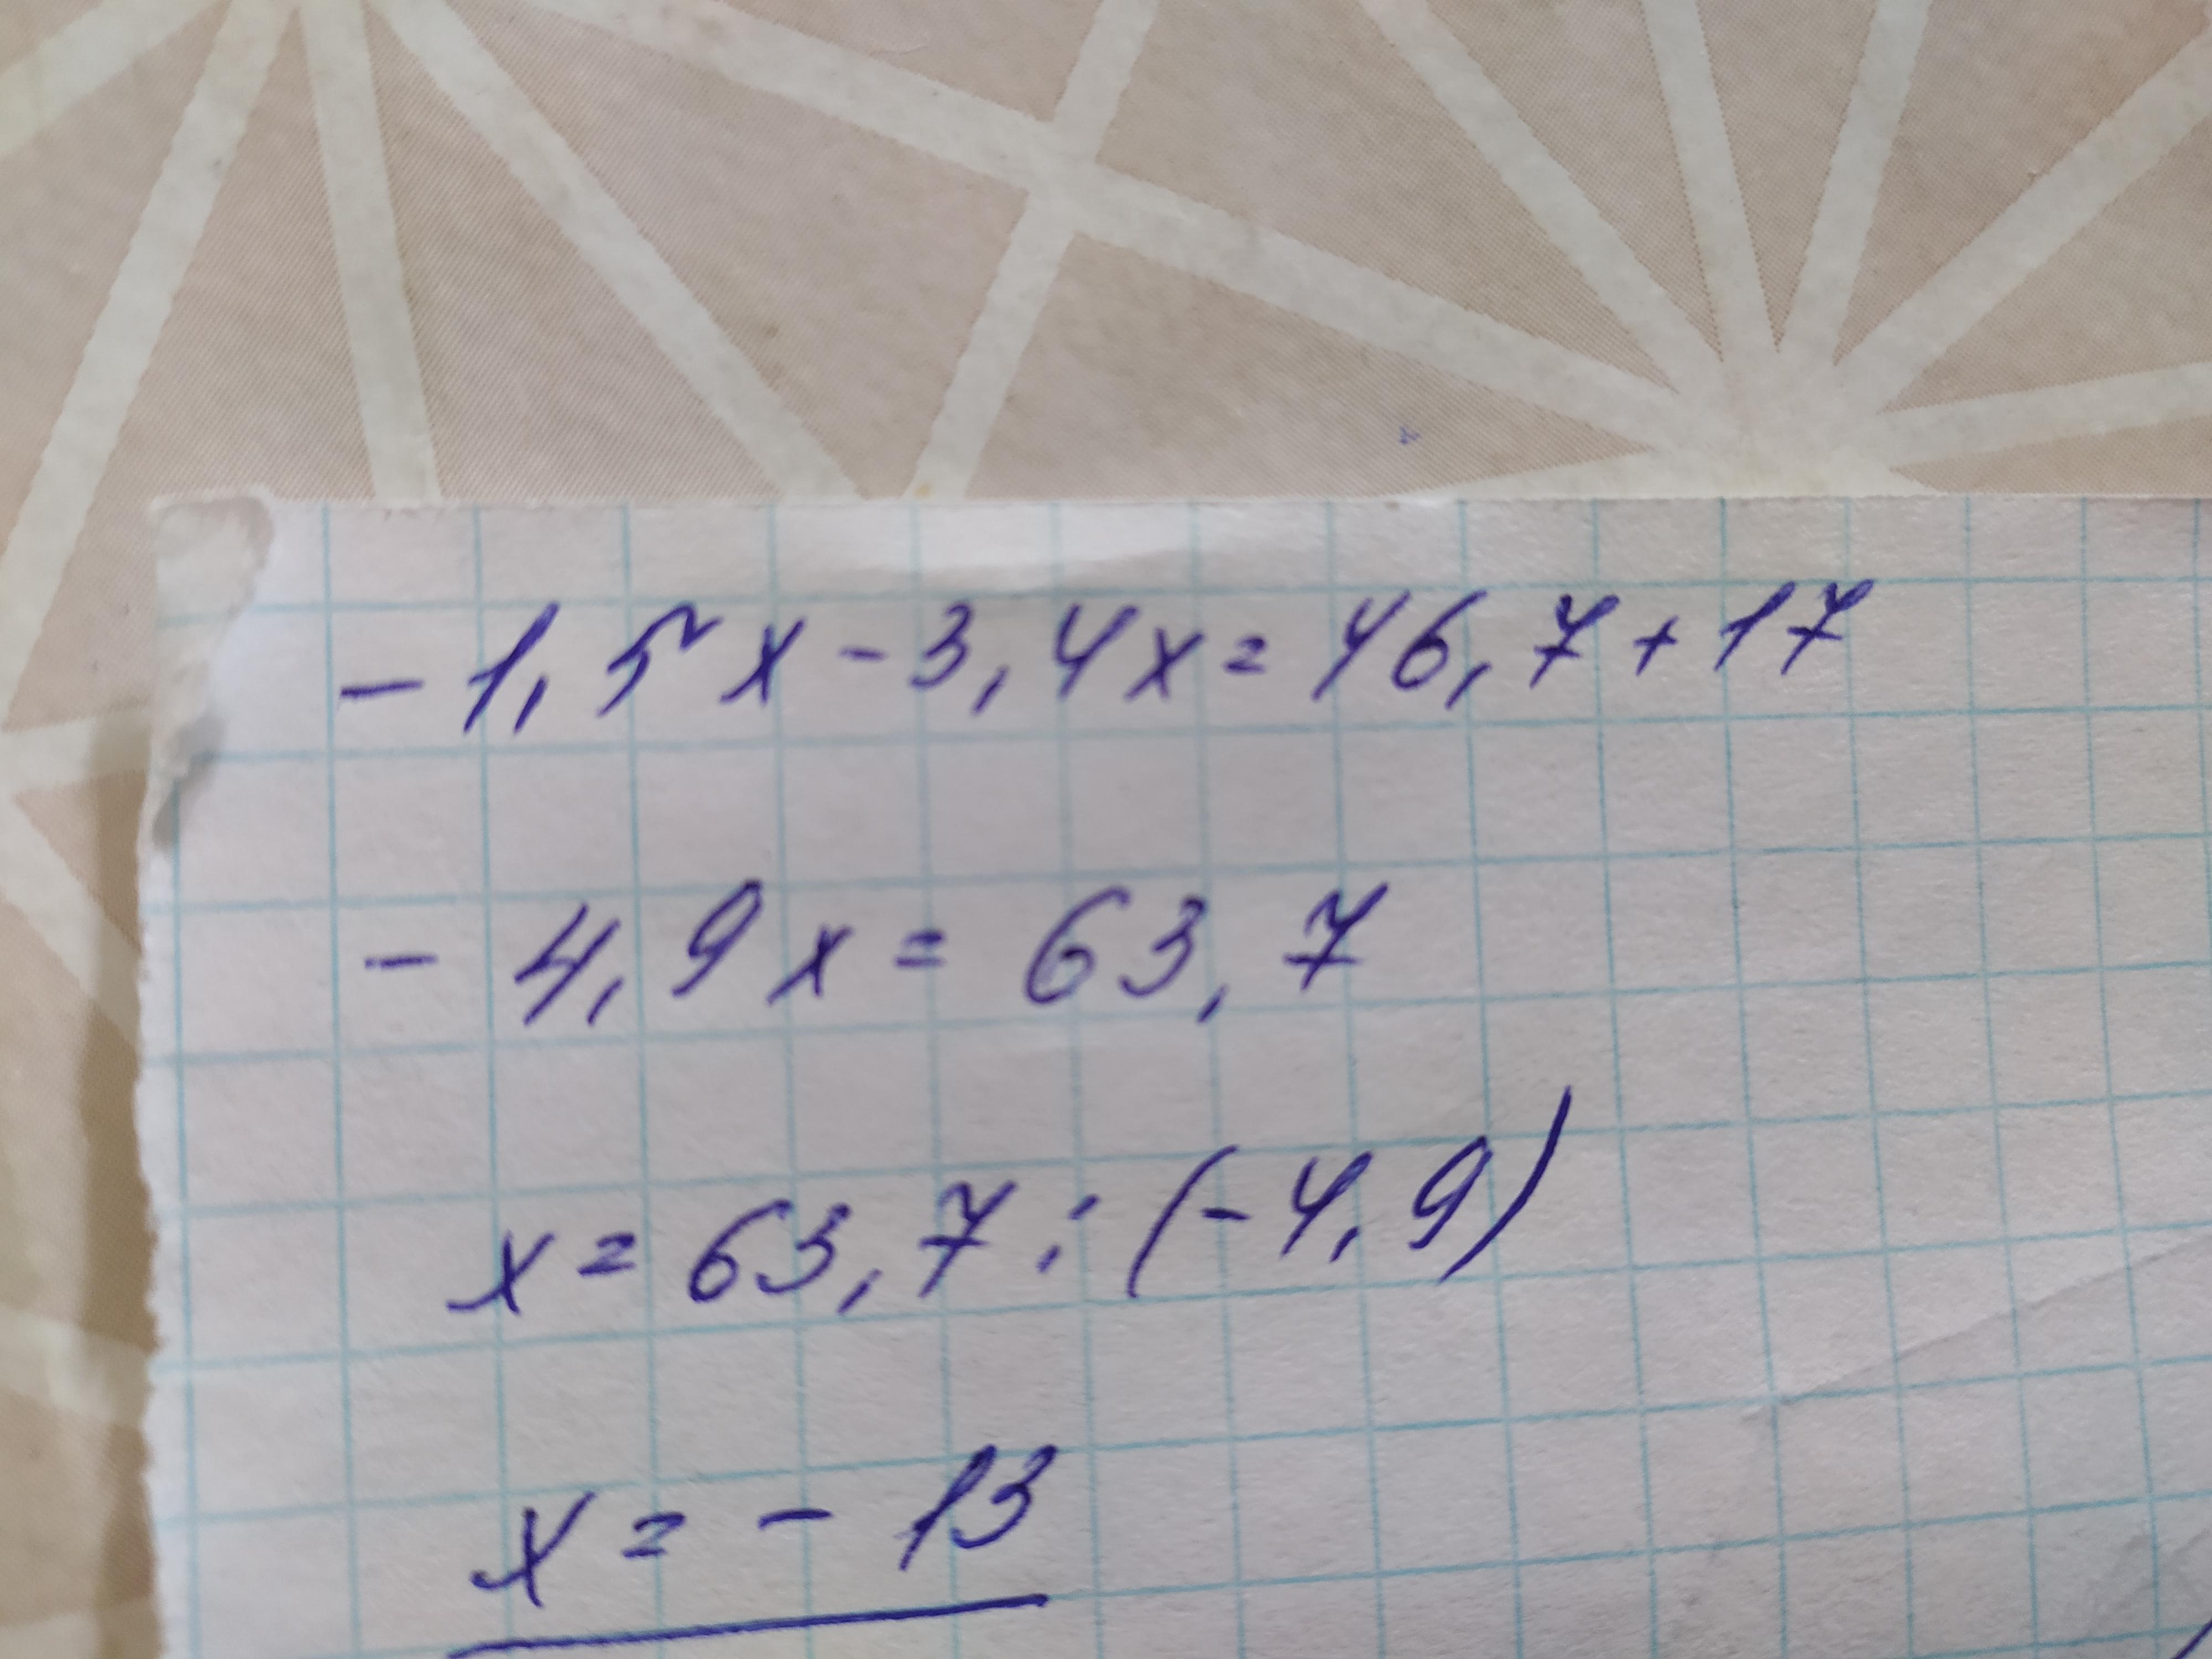 - 1,5x - 3,4x = 46,7 + 17
- 4,9x = 63,7
x = 63,7 : (-4,9)
x = - 13